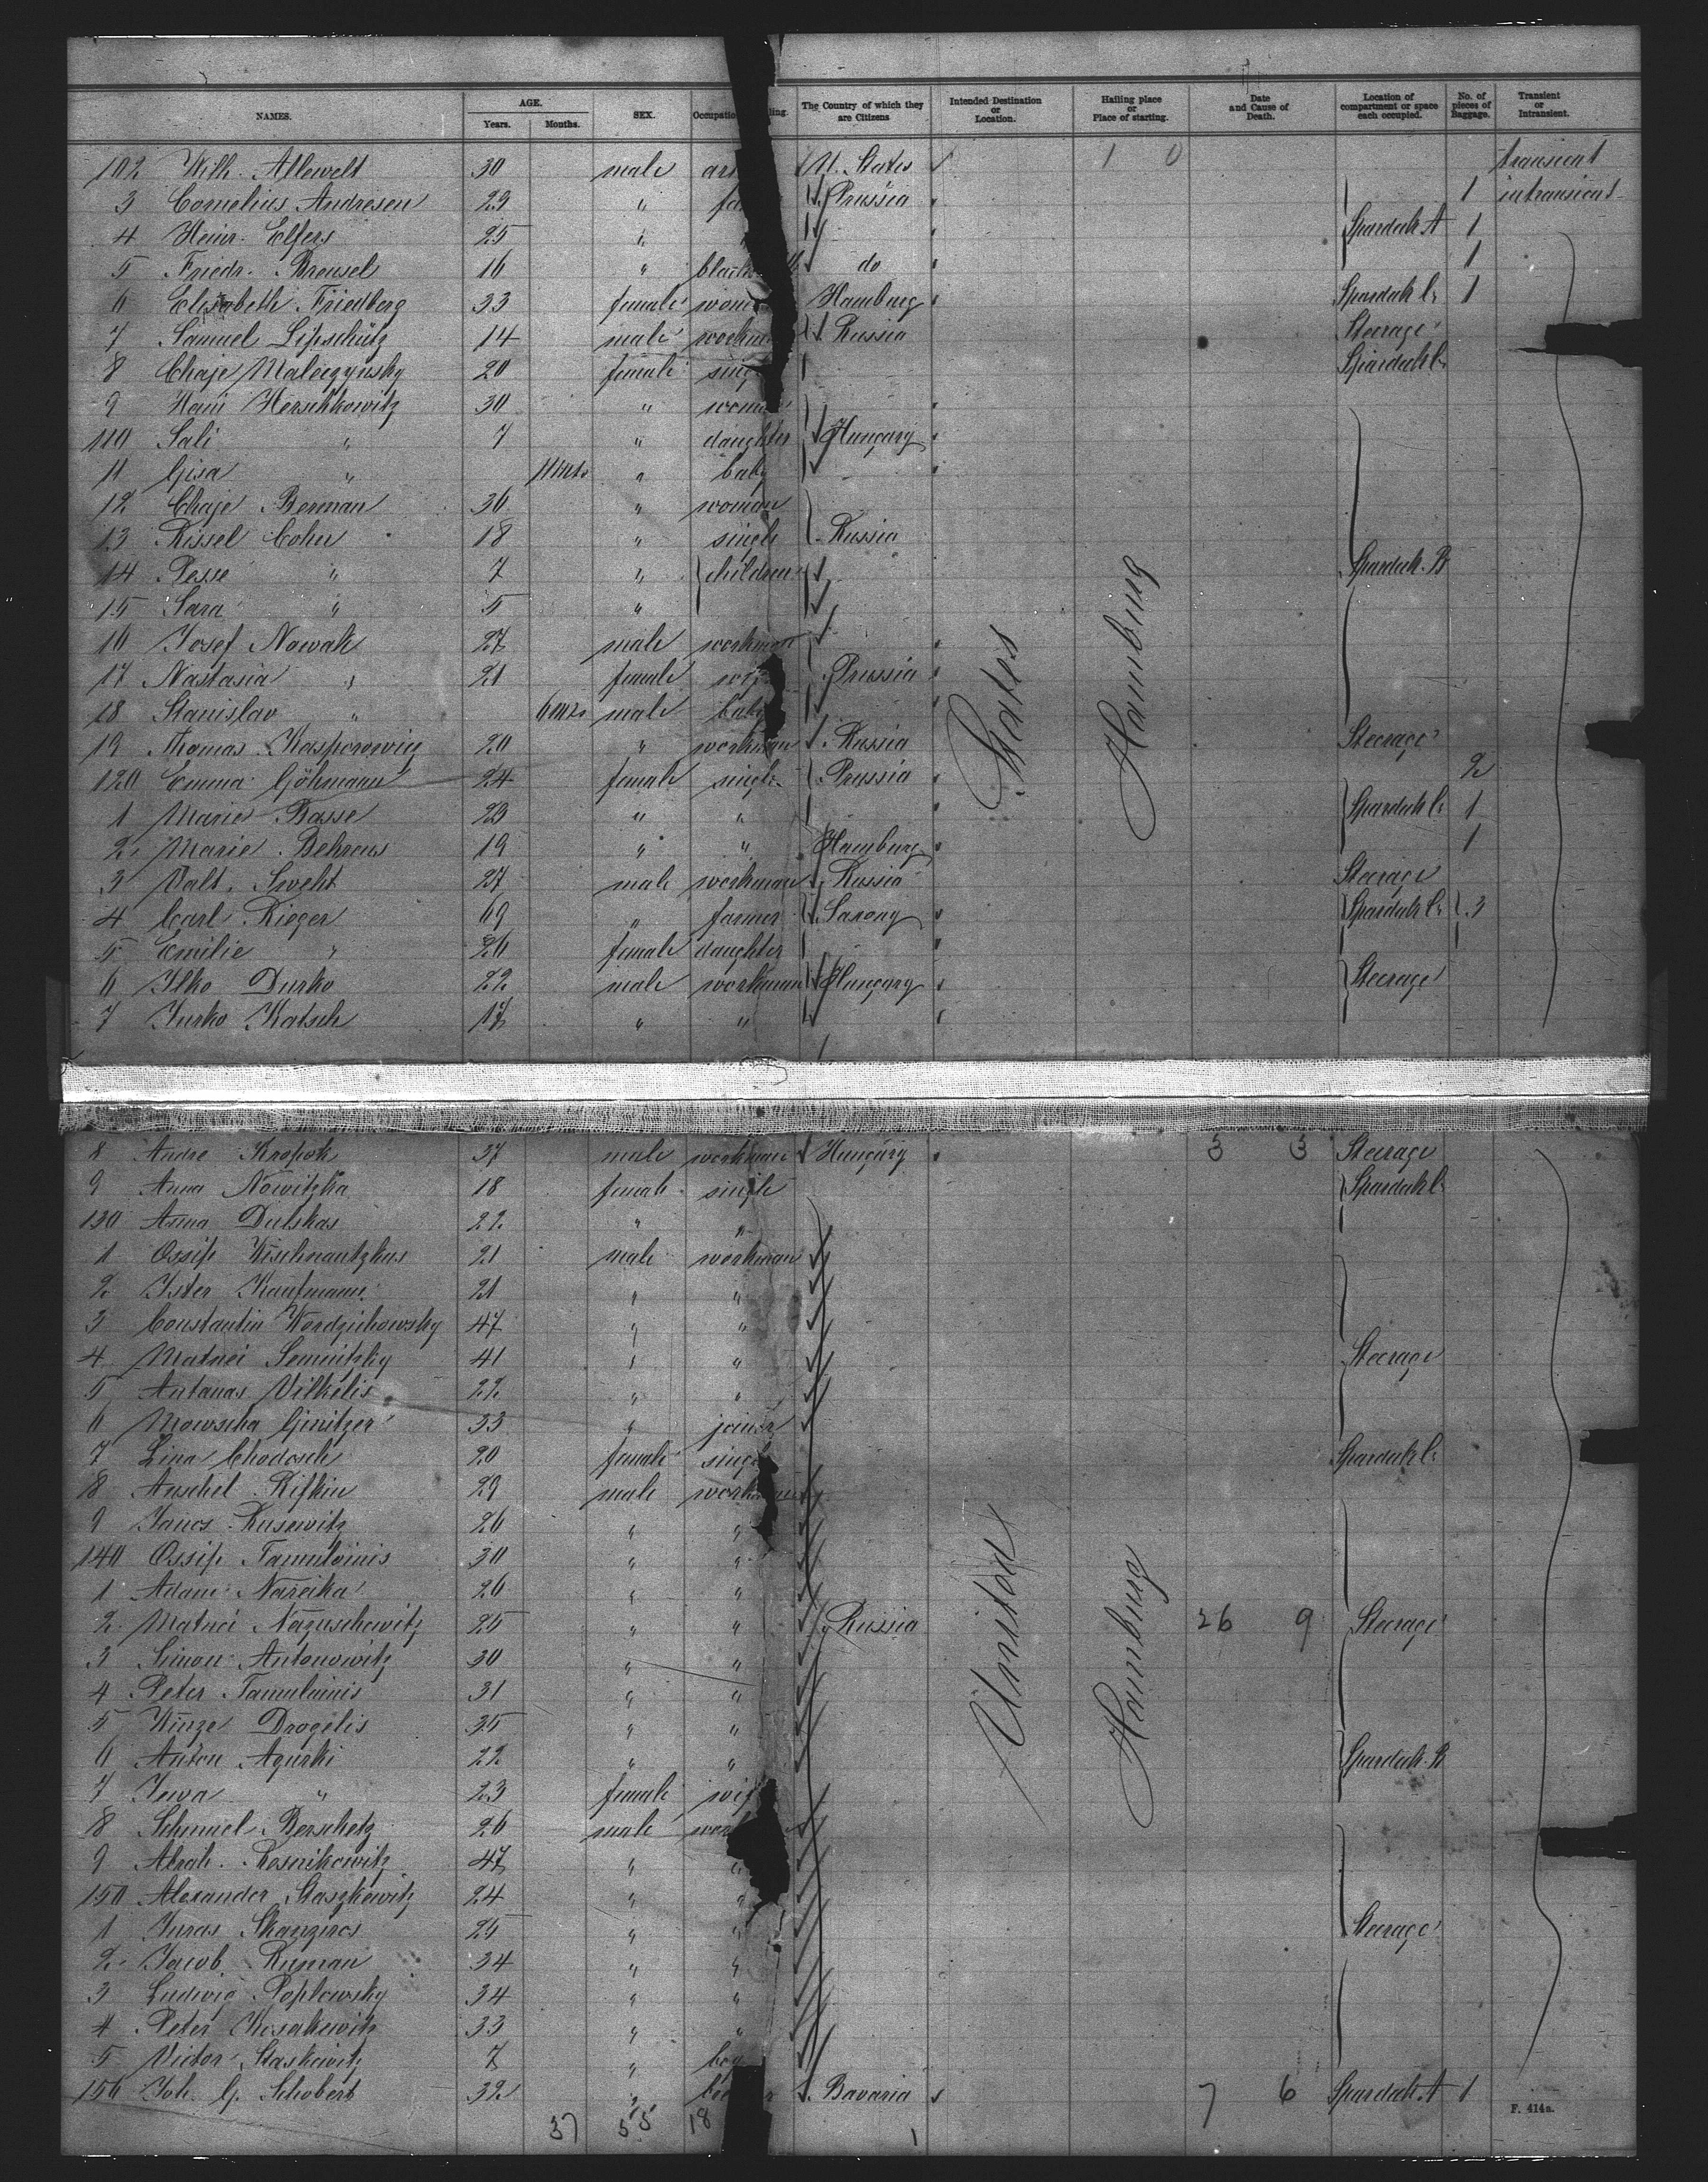 NAMES. AGE. Years. Months. SEX. Occupatio ling. The Country of which they are Citizens Intended Destination or Location. Hailing place or Place of starting. Date and Cause of Death. Location of compartment or space each occupied. No. of pieces of Baggage. Transient or Intransient.
102 Wilh. Allewelt 30 male U. States 1 0 transient
3 Cornelius Andresen 29 " Prussia 1 intransient
4 Heinr. Elfers 25 " Spardeck A 1
5 Friedr. Kreusel 16 " do 1
6 Elisabeth Friedberg 33 female Hamburg Spardeck C. 1
7 Samuel Lipschütz 14 male Russia Steerage
8 Chaje 20 female Spardeck C.
9 Hani Herschkowitz 30 " woman
110 Sali " 7 " daughter Hungary
11 Gisa " 11 mts " baby
12 Chaje Berman 36 " woman
13 Rissel Cohn 18 " single Russia
14 Pesse " 7 " children Spardeck B
15 Sara " 5 "
16 Josef Nowak 27 male workman
17 Nastasia " 21 female Prussia
18 Stanislav " 6 mts male baby
19 Thomas Kasporowicz 20 " workman Russia Steerage
120 Emma Göhmann 24 female single Prussia 2
1 Marie Basse 23 " " Spardeck C. 1
2 Marie Behrens 19 " " Hamburg 1
3 Valt. 27 male workman Russia Steerage
4 Carl Rieger 69 " farmer Saxony Spardeck C. 3
5 Emilie " 26 female daughter
6 Ilko Durko 22 male workman Hungary Steerage
7 Jurko Katsch 17 " "
States
Hamburg
8 Andre Kropok 37 male workman Hungary 3 3 Steerage
9 Anna Nowitzka 18 female single Spardeck C.
130 Anna Dulskas 22 " "
1 Ossip 21 male workman
2 Ister Kaufmann 21 " "
3 Constantin 47 " "
4 Matwei 41 " " Steerage
5 Antanas Vilkelis 22 " "
6 Mowscha Ginitzer 33 " joiner
7 Lina Chodosch 20 female Spardeck C.
8 Anschel Rifkin 29 male workman
9 Janos Rusewitz 26 " "
140 Ossip 30 " "
1 Adam Nareika 26 " "
2 Matwei 25 " " Russia 26 9 Steerage
3 Simon Antonowitz 30 " "
4 Peter 31 " "
5 Winze Drogelis 35 " "
6 Anton Agurki 22 " " Spardeck B
7 Jewa " 23 female wife
8 Schmiel Berschetz 26 male
9 Abrah. Resnikowitz 47 " "
150 Alexander Staszkewitz 24 " "
1 Juras 25 " " Steerage
2 Jacob Ruman 34 " "
3 Ludwig Poplowsky 34 " "
4 Peter 33 " "
5 Victor Staskewitz 7 " boy
156 Joh. G. Schobert 32 " Bavaria 7 6 Spardeck A 1
United
Hamburg
37 55 18 1
F. 414a.